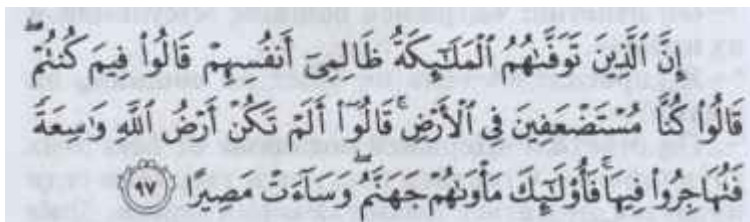 إِنَّ ٱلَّذِينَ تَوَفَّىٰهُمُ ٱلْمَلَٰٓئِكَةُ ظَالِمِىٓ أَنفُسِهِمْ قَالُوا۟ فِيمَ كُنتُمْ ۖ
قَالُوا۟ كُنَّا مُسْتَضْعَفِينَ فِى ٱلْأَرْضِ ۚ قَالُوٓا۟ أَلَمْ تَكُنْ أَرْضُ ٱللَّهِ وَٰسِعَةً
فَتُهَاجِرُوا۟ فِيهَا ۚ فَأُو۟لَٰٓئِكَ مَأْوَىٰهُمْ جَهَنَّمُ ۖ وَسَآءَتْ مَصِيرًا ﴿٩٧﴾